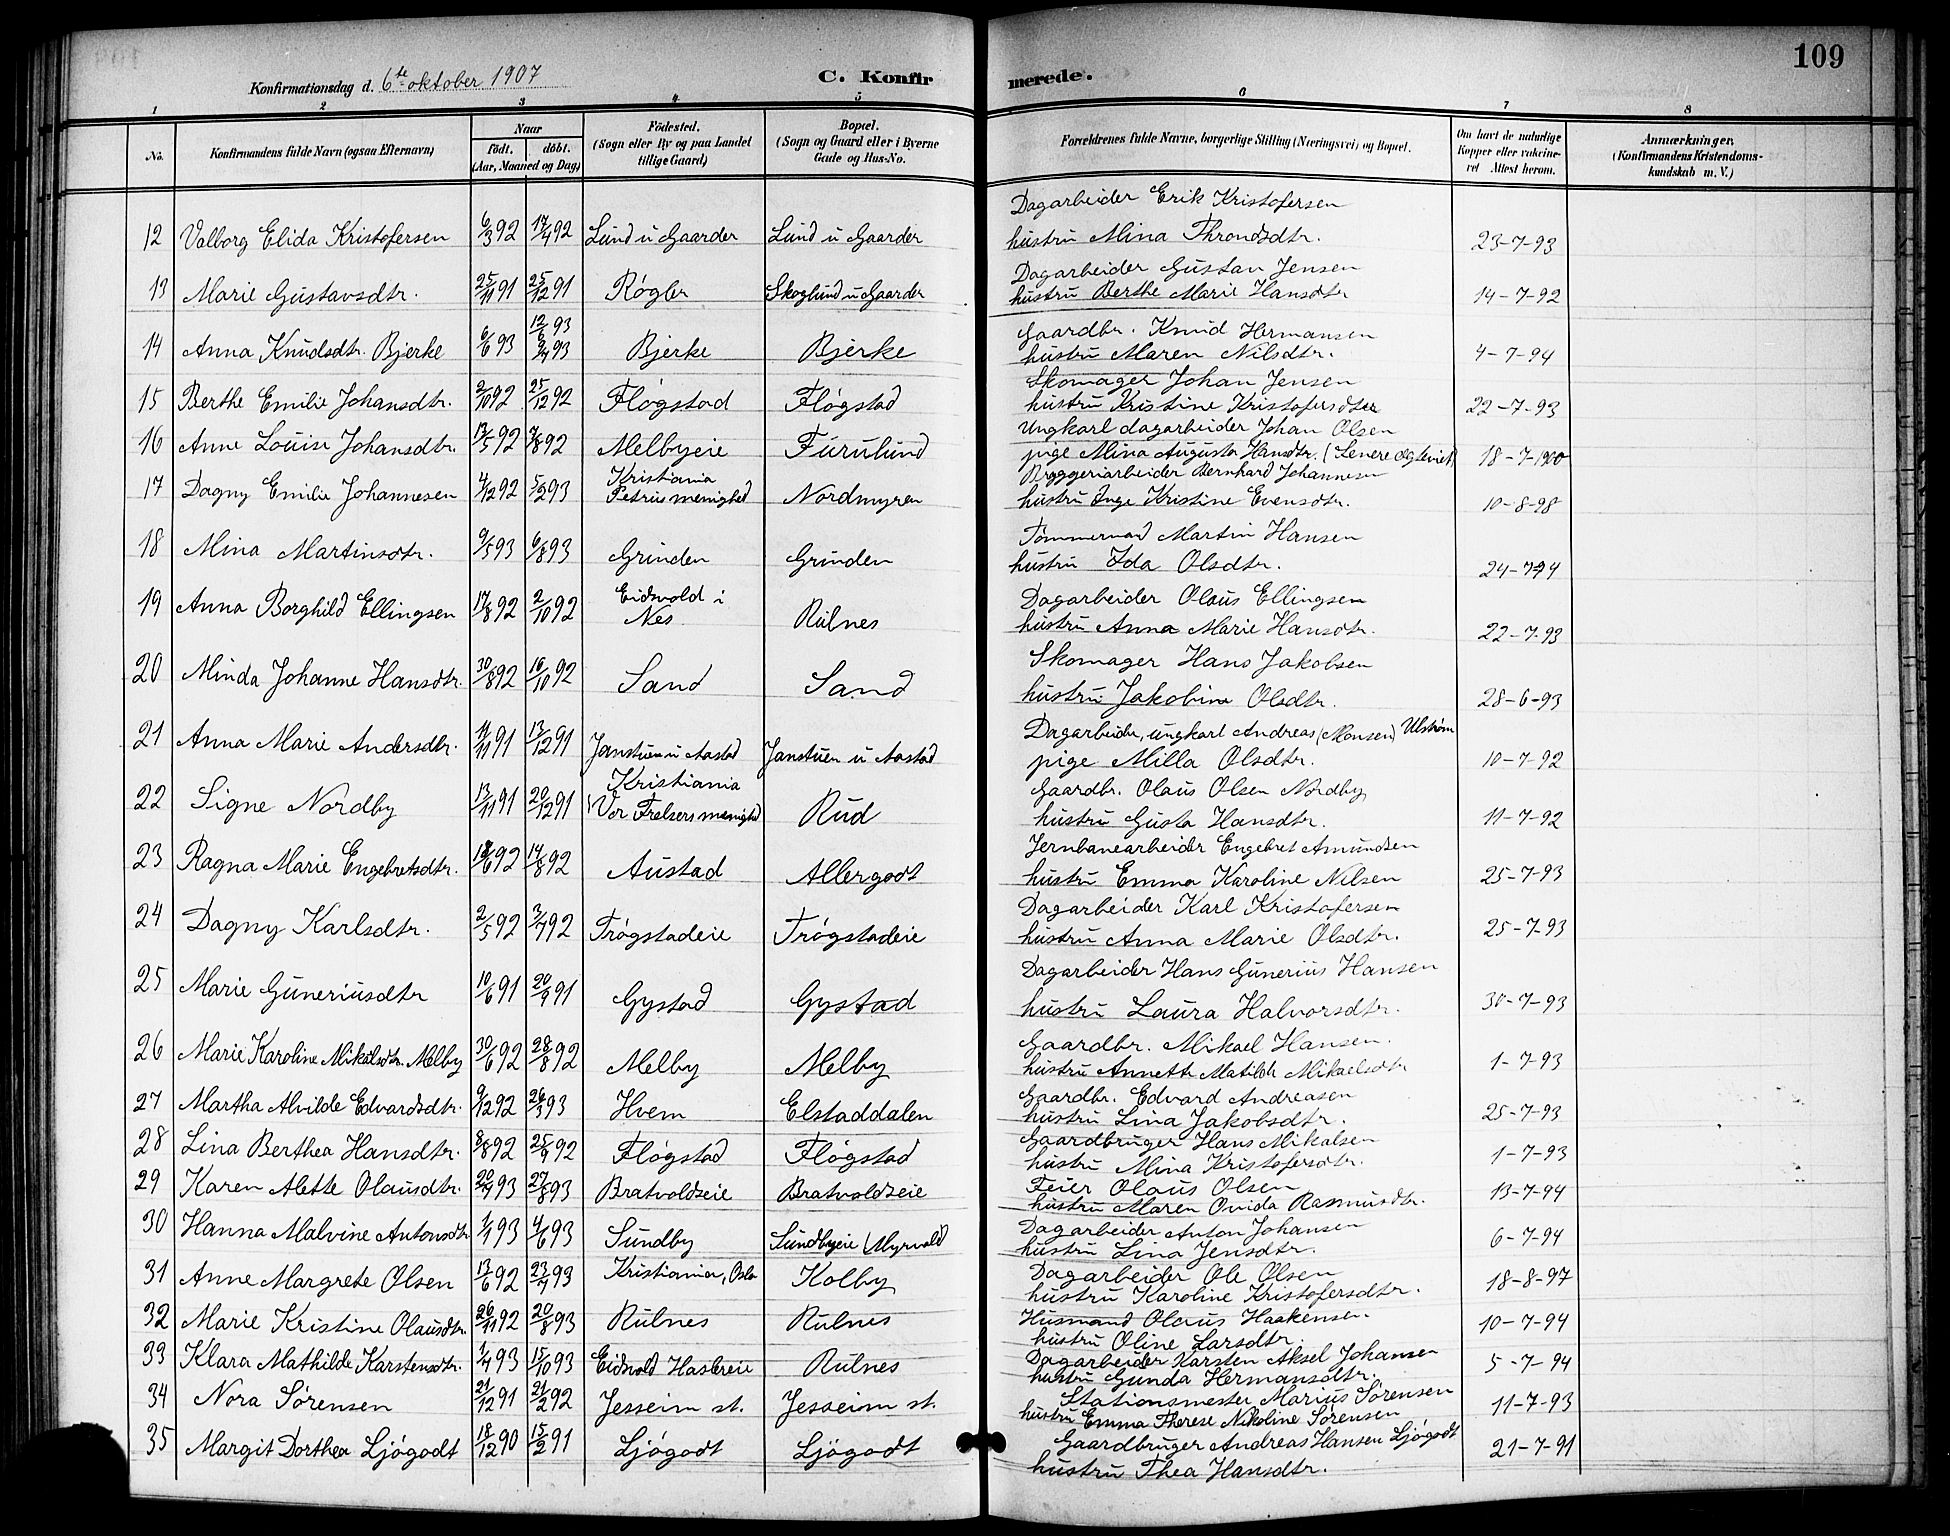 109
Konfirmationsdag d. 6te oktober 1907
C. Konfirmerede.
1 2 3 4 5 6 7 8
No. Konfirmandens fulde Navn (ogsaa Efternavn) Naar födt. döbt. (Aar, Maaned og Dag) Födested. (Sogn eller By og paa Landet tillige Gaard) Bopæl. (Sogn og Gaard eller i Byerne Gade og Hus-No. Forældrenes fulde Navne, borgerlige Stilling (Næringsvei) og Bopæl. Om havt de naturlige Kopper eller vaksineret Attest herom. Anmærkninger. (Konfirmandens Kristendomskundskab m. V.)
Dagarbeider Erik Kristofersen
12 Valborg Elida Kristofersen 6/3 92 17/4 92 Lund u Gaarder Lund u Gaarder hustru Mina Throndsdtr. 23-7-93
Dagarbeider Gustav Jensen
13 Marie Gustavsdtr. 25/11 91 25/12 91 Røgler Skoglund u Gaarder hustru Berthe Marie Hansdtr 14-7-92
Gaardbr. Knud Hermansen
14 Anna Knudsdtr. Bjerke 6/6 93 Bjerke Bjerke hustru Maren Nilsdtr. 4-7-94
Skomager Johan Jensen
15 Berthe Emilie Johansdtr. 2/10 92 25/12 92 Fløgstad Fløgstad hustru Kristine Kristofersdter 22-7-93
Ungkarl dagarbeider Johan Olsen
16 Anne Louise Johansdtr. 13/5 92 7/8 92 Melbyeie Furulund pige Mina Augusta Hansdtr. (Senere ægteviet) 18-7-1900
Bryggeriarbeider Bernhard Johannesen
17 Dagny Emilie Johannesen 4/12 92 5/2 93 Kristiania Petrus menighed Nordmyren hustru Inge Kristine Evensdtr. 10-8-98
Tømmermand Martin Hansen
18 Mina Martinsdtr. 9/5 93 6/8 93 Grinden Grinden hustru Ida Olsdtr. 24-7-94
Dagarbeider Olaus Ellingsen
19 Anna Borghild Ellingsen 17/8 92 2/10 92 Eidsvold i Nes Rulnes hustru Anna Marie Hansdtr. 22-7-93
Skomager Hans Jakobsen
20 Minda Johanne Hansdtr. 30/8 92 16/10 92 Sand Sand hustru Jakobine Olsdtr. 28-6-93
Dagarbeider, ungkarl Andreas (Monsen) Ulstrøm
21 Anna Marie Andersdtr. 11/11 91 13/12 91 Janstuen u Aastad Janstuen u Aastad pige Milla Olsdtr. 10-7-92
Gaardbr. Olaus Olsen Nordby
22 Signe Nordby 13/11 91 20/12 91 Kristiania Vor Frelsers menighed Rud hustru Gusta Hansdtr. 11-7-92
Jernbanearbeider Engebret Amundsen
23 Ragna Marie Engebretsdtr. 92 14/8 92 Austad Allergodt hustru Emma Karoline Nilsen 25-7-93
Dagarbeider Karl Kristofersen
24 Dagny Karlsdtr. 2/5 92 3/7 92 Trøgstadeie Trøgstadeie hustru Anna Marie Olsdtr. 25-7-93
Dagarbeider Hans Gunerius Hansen
25 Marie Guneriusdtr 10/6 91 20/9 91 Gystad Gystad hustru Laura Halvorsdtr. 30-7-93
Gaardbr. Mikael Hansen.
26 Marie Karoline Mikalsdtr. Melby 30/6 92 28/8 92 Melby Melby hustru Annette Matilde Mikaelsdtr 1-7-93
Gaardbr. Edvard Andreasen
27 Martha Alvilde Edvardsdtr. 9/12 92 26/3 93 Hvem Elstaddalen hustru Lina Jakobsdtr. 25-7-93
Gaardbruger Hans Mikalsen
28 Lina Berthea Hansdtr. 8/8 92 25/9 92 Fløgstad Fløgstad hustru Mina Kristofersdtr. 1-7-93
Feier Olaus Olsen
29 Karen Alette Olausdtr. 93 27/8 93 Bratvoldseie Bratvoldseie hustru Maren Ovida Rasmusdtr. 13-7-94
Dagarbeider Anton Johansen
30 Hanna Malvine Antonsdtr 1/1 93 4/6 93 Sundby Sundbyeie (Myrvold) hustru Lina Jensdtr. 6-7-94
Dagarbeider Ole Olsen
31 Anne Margrete Olsen 13/6 92 23/7 93 Kristiania, Oslo Kolby hustru Karoline Kristofersdtr. 18-8-97
Husmand Olaus Haakensen.
32 Marie Kristine Olausdtr. 26/11 92 20/8 93 Rulnes Rulnes hustru Oline Larsdtr. 10-7-94
Dagarbeider Karsten Aksel Johansen
33 Klara Mathilde Karstensdtr. 1/4 93 15/10 93 Eidsvold Haslereie Rulnes hustru Gunda Hermansdtr. 5-7-94
Stationsmester Marius Sørensen
34 Nora Sørensen 21/12 91 21/2 92 Jesseim st. Jesseim st. hustru Emma Therese Nikoline Sørensen 11-7-93
Gaardbruger Andreas Hansen Ljøgodt
35 Margit Dorthea Ljøgodt 18/12 90 15/2 91 Ljøgodt Ljøgodt hustru Thea Hansdtr. 21-7-91